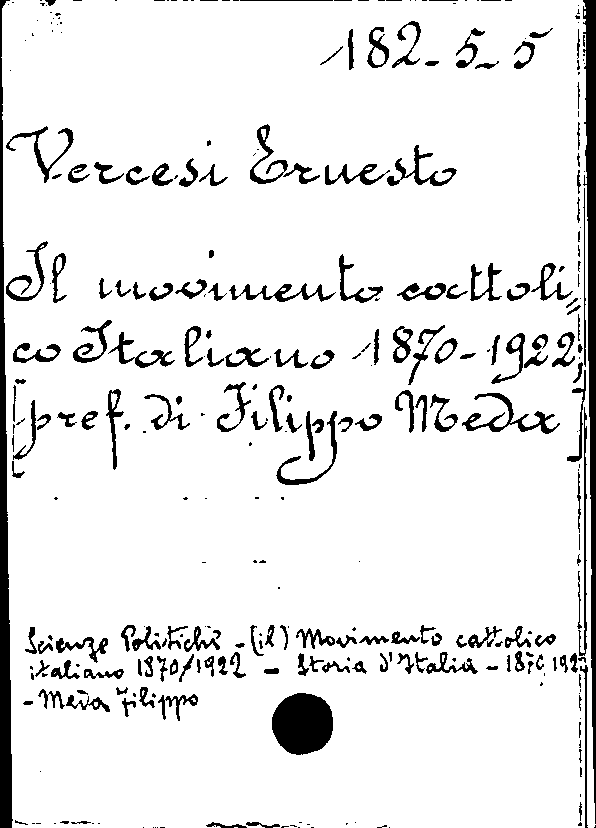 182-5-5
Vercesi Ernesto
Il movimento cattoli=
co Italiano 1870-1922;
[pref. di Filippo Meda]
Scienze Politiche - (il) Movimento cattolico
italiano 1870/1922 - Storia d'Italia - 1870 1922
- Meda Filippo